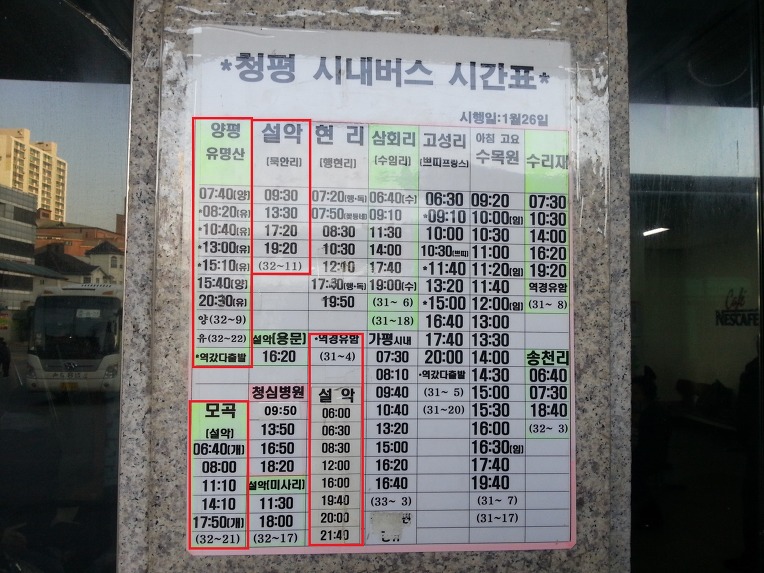 *청평 시내버스 시간표*
시행일:1월26일
양평
유명산
07:40(양)
*08:20(유)
*10:40(유)
*13:00(유)
*15:10(유)
15:40(양)
20:30(유)
양(32~9)
유(32~22)
*역갔다출발
모곡
(설악)
06:40(개)
08:00
11:10
14:10
17:50(개)
(32~21)
설악
(묵안리)
09:30
13:30
17:20
19:20
(32~11)
설악(용문)
16:20
청심병원
09:50
13:50
16:50
18:20
설악(미사리)
11:30
18:00
(32~17)
현 리
(행현리)
07:20(행·독)
07:50
08:30
10:30
12:10
17:30(행·독)
19:50
*역경유함
(31~4)
설 악
06:00
06:30
08:30
12:00
16:00
19:40
20:00
21:40
삼회리
(수입리)
06:40(수)
09:10
11:30
14:00
17:40
19:00(수)
(31~ 6)
(31~18)
가평시내
07:30
08:10
09:40
10:40
13:20
15:00
16:20
16:40
(33~ 3)
고성리
(쁘띠프랑스)
06:30
*09:10
10:00
10:30(쁘띠)
*11:40
13:20
*15:00
16:40
17:40
20:00
*역갔다출발
(31~ 5)
(31~20)
아침 고요
수목원
09:20
10:00(임)
10:30
11:00
11:20(임)
11:40
12:00(임)
13:00
13:30
14:00
14:30
15:00
15:30
16:30(임)
17:40
19:40
(31~ 7)
(31~17)
수리재
07:30
10:30
14:00
16:20
19:20
역경유함
(31~ 8)
송천리
06:40
07:30
18:40
(32~ 3)
Café
NESCAFÉ